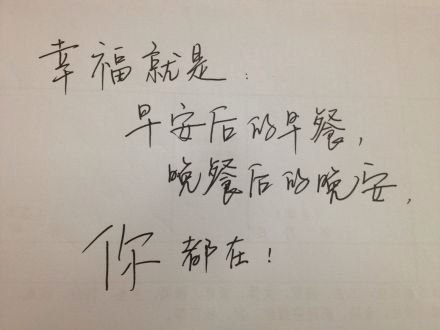 幸福就是：
早安后的早餐，
晚餐后的晚安，
你都在！